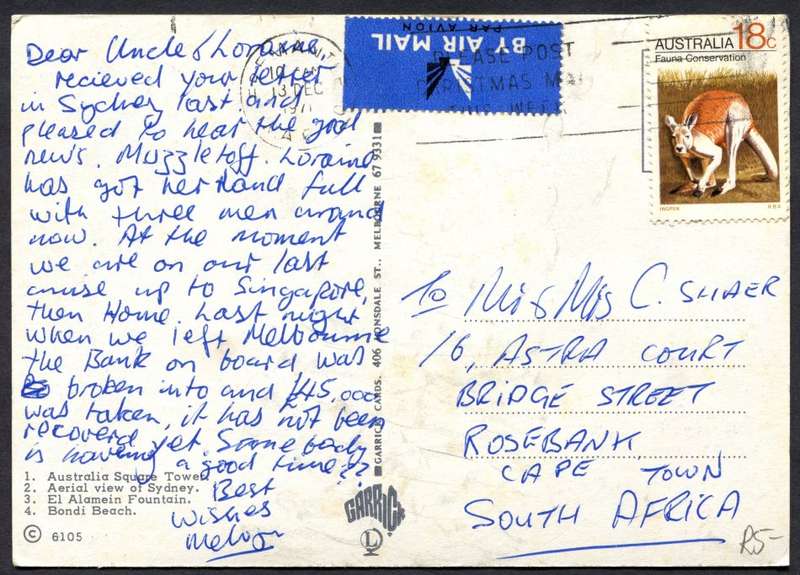 Dear Uncle & Loraine
recieved your letter
in Sydney last and
pleased to hear the good
news. Muzzletoff. Loraine
has got her hand full
with three men around
now. At the moment
we are on our last
cruise up to Singapore,
then Home. Last night
when we left Melbourne
the Bank on board was
broken into and £45,000
was taken, it has not been
recoverd yet. Some body
is having a good time??
Best
Wishes
1. Australia Square Tower.
2. Aerial view of Sydney.
3. El Alamein Fountain.
4. Bondi Beach.
© 6105
GARRICK CARDS. 406 LONSDALE ST., MELBOURNE 67 9331
GARRICK
L
BY AIR MAIL
PAR AVION
PLEASE POST
CHRISTMAS MAIL
THIS WEEK
13 DEC
AUSTRALIA 18c
Fauna Conservation
INGPEN
RBA
To Mr & Mrs C. SHAER
16, ASTRA COURT
BRIDGE STREET
ROSEBANK
CAPE TOWN
SOUTH AFRICA
R5-